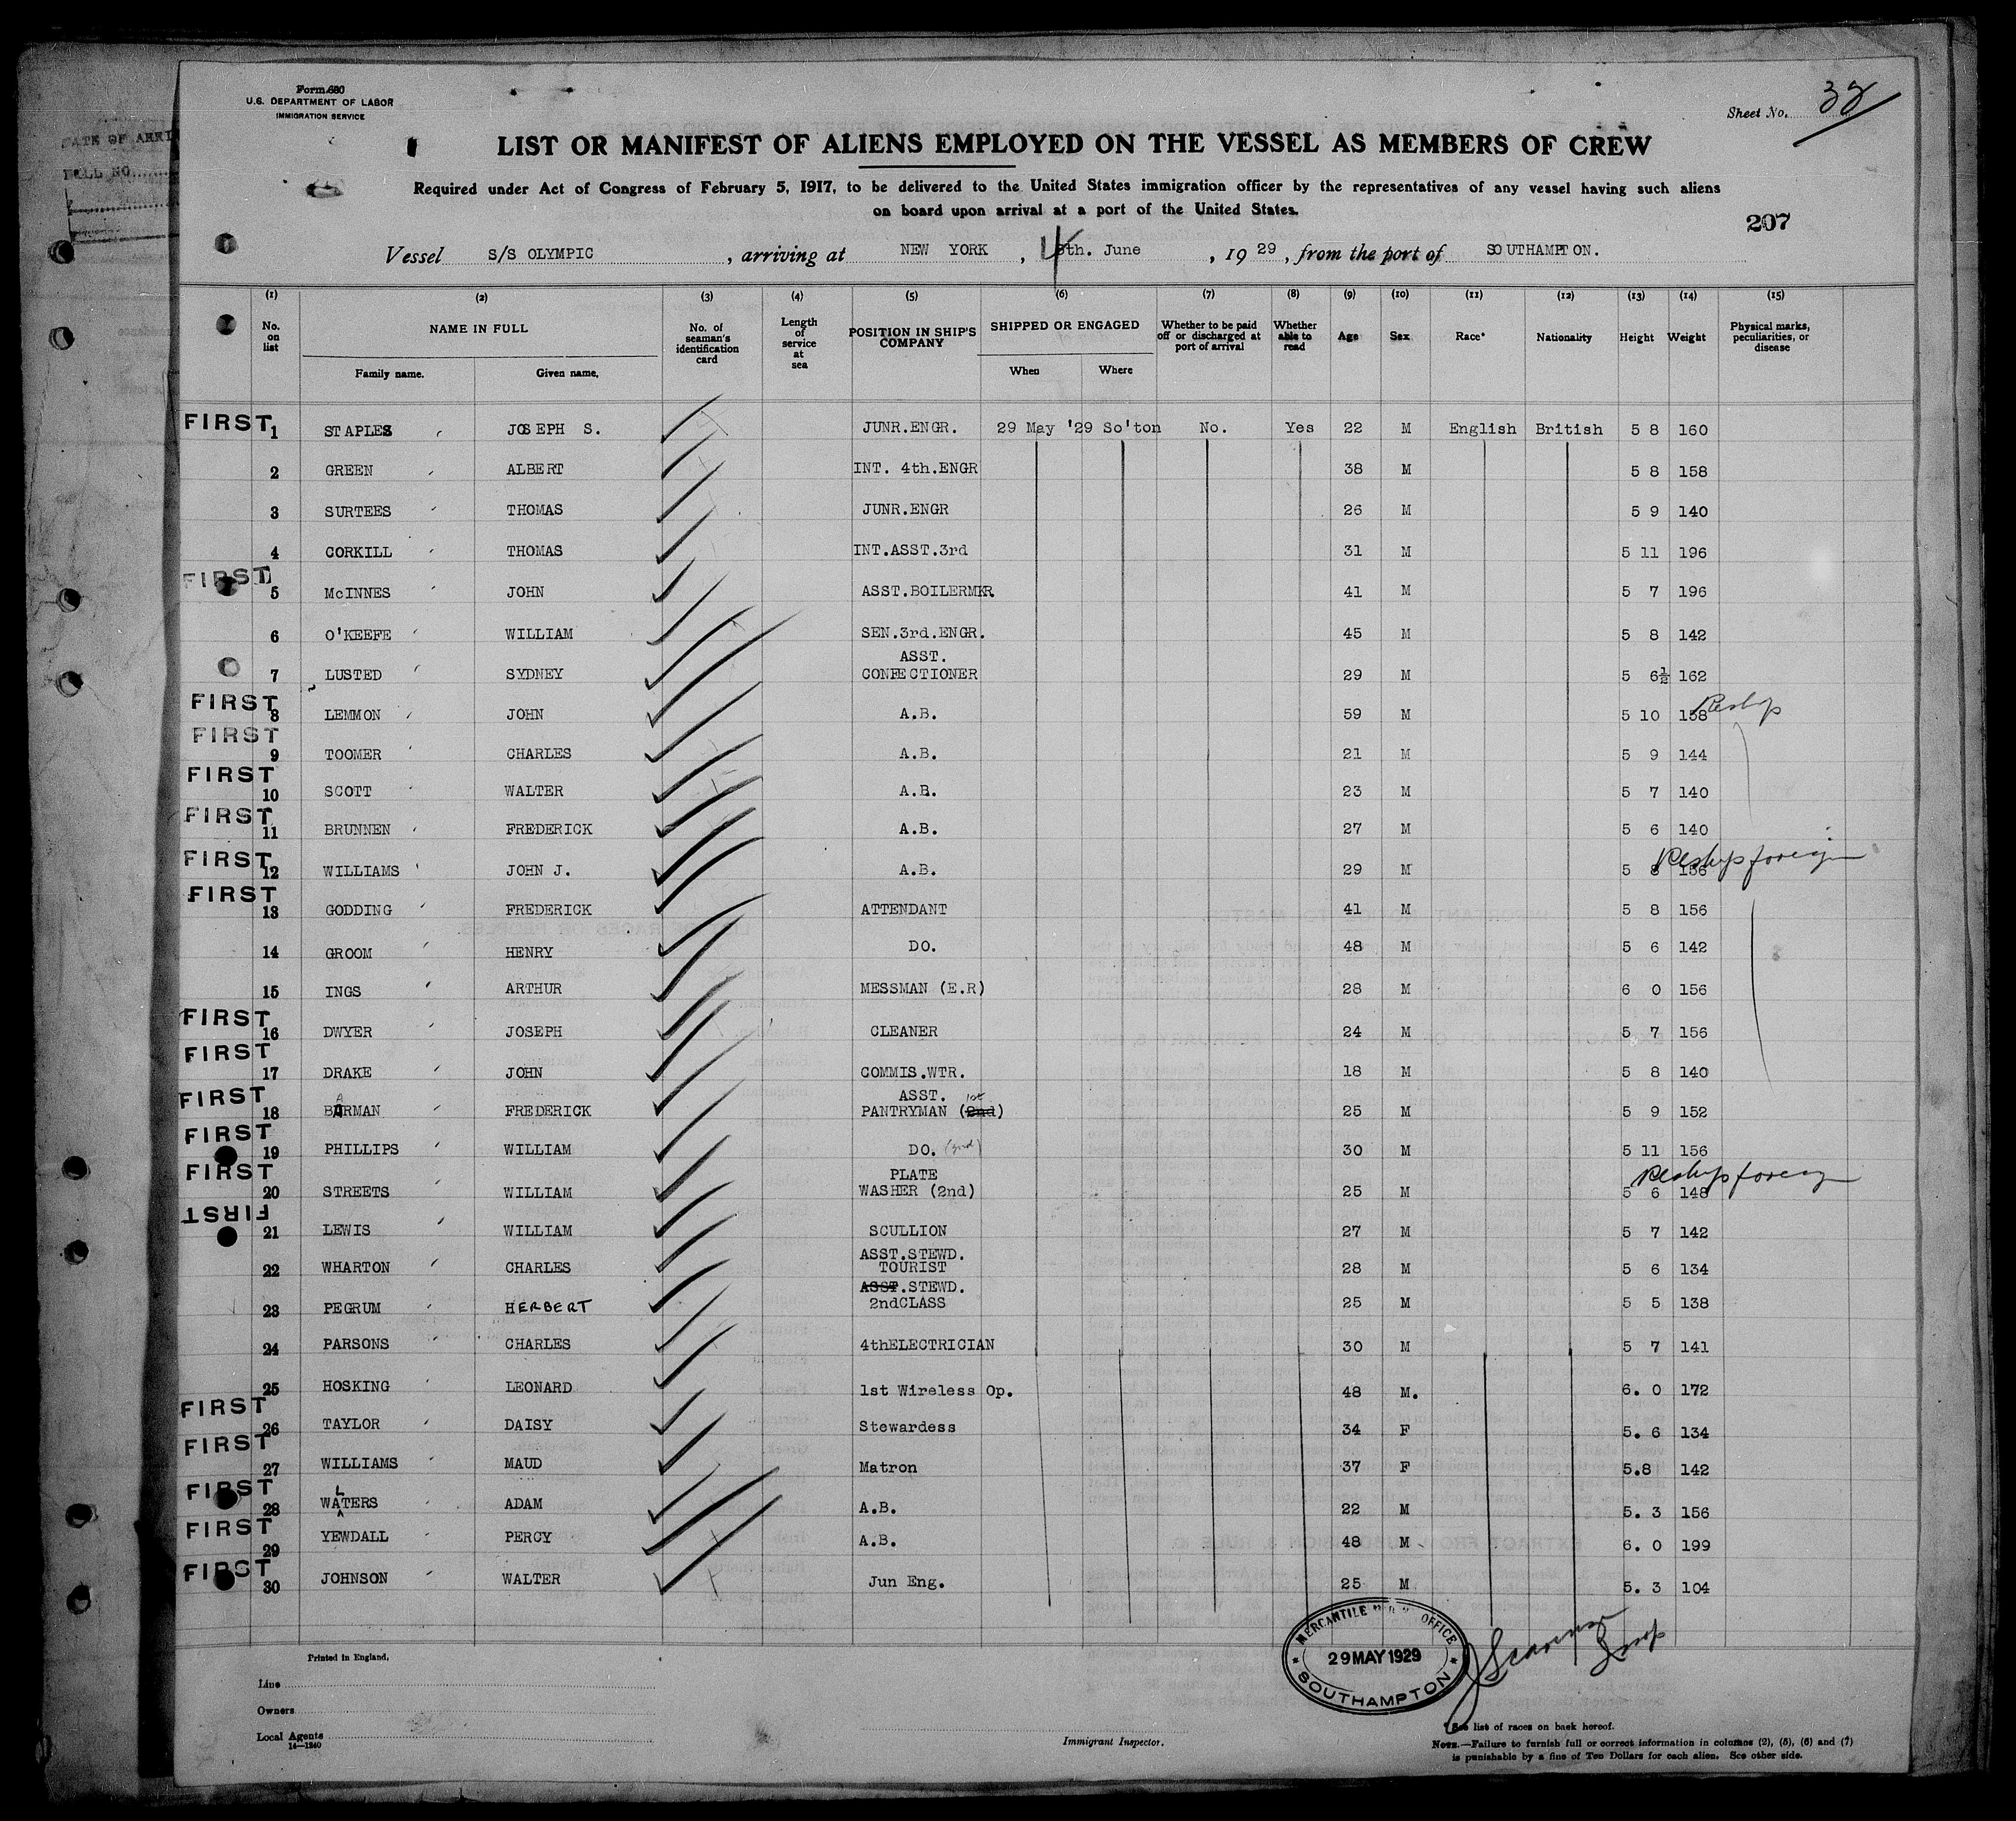 Form 680
U.S. DEPARTMENT OF LABOR
IMMIGRATION SERVICE
Sheet No.
LIST OR MANIFEST OF ALIENS EMPLOYED ON THE VESSEL AS MEMBERS OF CREW
Required under Act of Congress of February 5, 1917, to be delivered to the United States immigration officer by the representatives of any vessel having such aliens
on board upon arrival at a port of the United States.
207
Vessel S/S OLYMPIC, arriving at NEW YORK, th. June, 1929, from the port of SOUTHAMPTON.
(1) (2) (3) (4) (5) (6) (7) (8) (9) (10) (11) (12) (13) (14) (15)
No. on list NAME IN FULL Family name. Given name. No. of seaman's identification card Length of service at sea POSITION IN SHIP'S COMPANY SHIPPED OR ENGAGED When Where Whether to be paid off or discharged at port of arrival Whether able to read Age Sex Race* Nationality Height Weight Physical marks, peculiarities, or disease
FIRST 1 STAPLES JOSEPH S. JUNR.ENGR. 29 May '29 So'ton No. Yes 22 M English British 5 8 160
2 GREEN ALBERT INT. 4th.ENGR 38 M 5 8 158
3 SURTEES THOMAS JUNR.ENGR 26 M 5 9 140
4 CORKILL THOMAS INT.ASST.3rd 31 M 5 11 196
FIRST 5 McINNES JOHN ASST.BOILERMKR 41 M 5 7 196
6 O'KEEFE WILLIAM SEN.3rd.ENGR. 45 M 5 8 142
7 LUSTED SYDNEY ASST. CONFECTIONER 29 M 5 6½ 162
FIRST 8 LEMMON JOHN A.B. 59 M 5 10 158 Reship
FIRST 9 TOOMER CHARLES A.B. 21 M 5 9 144
FIRST 10 SCOTT WALTER A.B. 23 M 5 7 140
FIRST 11 BRUNNEN FREDERICK A.B. 27 M 5 6 140
FIRST 12 WILLIAMS JOHN J. A.B. 29 M 5 8 156 Reship foreign
FIRST 13 GODDING FREDERICK ATTENDANT 41 M 5 8 156
14 GROOM HENRY DO. 48 M 5 6 142
15 INGS ARTHUR MESSMAN (E.R) 28 M 6 0 156
FIRST 16 DWYER JOSEPH CLEANER 24 M 5 7 156
FIRST 17 DRAKE JOHN COMMIS.WTR. 18 M 5 8 140
FIRST 18 BARMAN FREDERICK ASST. PANTRYMAN (2nd) 1st 25 M 5 9 152
FIRST 19 PHILLIPS WILLIAM DO. (2nd) 30 M 5 11 156
FIRST 20 STREETS WILLIAM PLATE WASHER (2nd) 25 M 5 6 148 Reship foreign
FIRST 21 LEWIS WILLIAM SCULLION 27 M 5 7 142
22 WHARTON CHARLES ASST.STEWD. TOURIST 28 M 5 6 134
23 PEGRUM HERBERT ASST.STEWD. 2ndCLASS 25 M 5 5 138
24 PARSONS CHARLES 4thELECTRICIAN 30 M 5 7 141
25 HOSKING LEONARD 1st Wireless Op. 48 M. 6. 0 172
FIRST 26 TAYLOR DAISY Stewardess 34 F 5. 6 134
FIRST 27 WILLIAMS MAUD Matron 37 F 5.8 142
FIRST 28 WALTERS ADAM A.B. 22 M 5. 3 156
FIRST 29 YEWDALL PERCY A.B. 48 M 6. 0 199
FIRST 30 JOHNSON WALTER Jun Eng. 25 M 5. 3 104
MERCANTILE OFFICE
29 MAY 1929
SOUTHAMPTON
Printed in England.
Line
Owners
Local Agents
14—1240
Immigrant Inspector.
* See list of races on back hereof.
NOTE.—Failure to furnish full or correct information in columns (2), (5), (6) and (7)
is punishable by a fine of Ten Dollars for each alien. See other side.